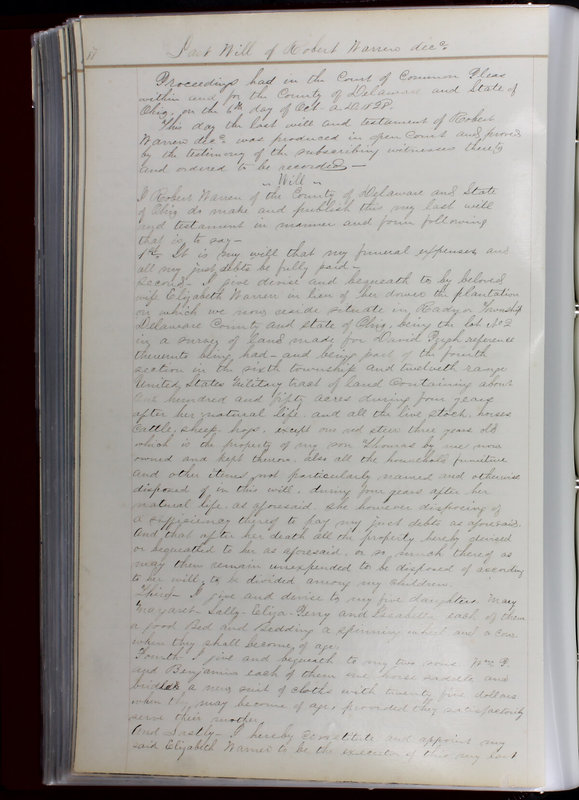 Last Will of Robert Warren decd.
Proceedings had in the Court of Common Pleas
within and for the County of Delaware and State of
Ohio, on the 6th day of Oct. A.D. 1828.
This day the last will and testament of Robert
Warren decd. was produced in open Court and proved
by the testimony of the subscribing witnesses thereto
and ordered to be recorded —
~ Will ~
I Robert Warren of the County of Delaware and State
of Ohio do make and publish this my last will
and testament in manner and form following
that is to say —
1st. It is my will that my funeral expenses and
all my just debts be fully paid —
Second — I give devise and bequeath to by beloved
wife Elizabeth Warren in lieu of her dower the plantation
on which we now reside situate in Township
Delaware County and State of Ohio, being the lot No 2
in a survey of land made for David reference
thereunto being had — and being part of the fourth
section in the sixth township and twelveth range
United States Military tract of land Containing about
One hundred and fifty acres during four years
after her natural life. and all the live stock, horses
Cattle, sheep, hogs, except one red steer three years old
which is the property of my son Thomas by me now
owned and kept thereon. also all the household furniture
and other items not particularly named and otherwise
disposed of in this will. during four years after her
natural life, as aforesaid. she however disposing of
a sufficiency thereof to pay my just debts as aforesaid.
And that after her death all the property hereby devised
or bequeathed to her as aforesaid. or so much thereof as
may then remain unexpended to be disposed of according
to her will, to be divided among my children.
Third — I give and devise to my five daughters, Mary
Margaret — Sally — Eliza — and each of them
a good Bed and Bedding a spinning wheel and a Cow
when they shall become of age.
Fourth I give and bequeath to my two sons Wm.
and Benjamin each of them one horse saddle and
bridle a new suit of cloths with twenty five dollars
when they may become of age, provided they satisfactorily
serve their mother.
And Lastly — I hereby Constitute and appoint my
said Elizabeth Warren to be the executor of this my last